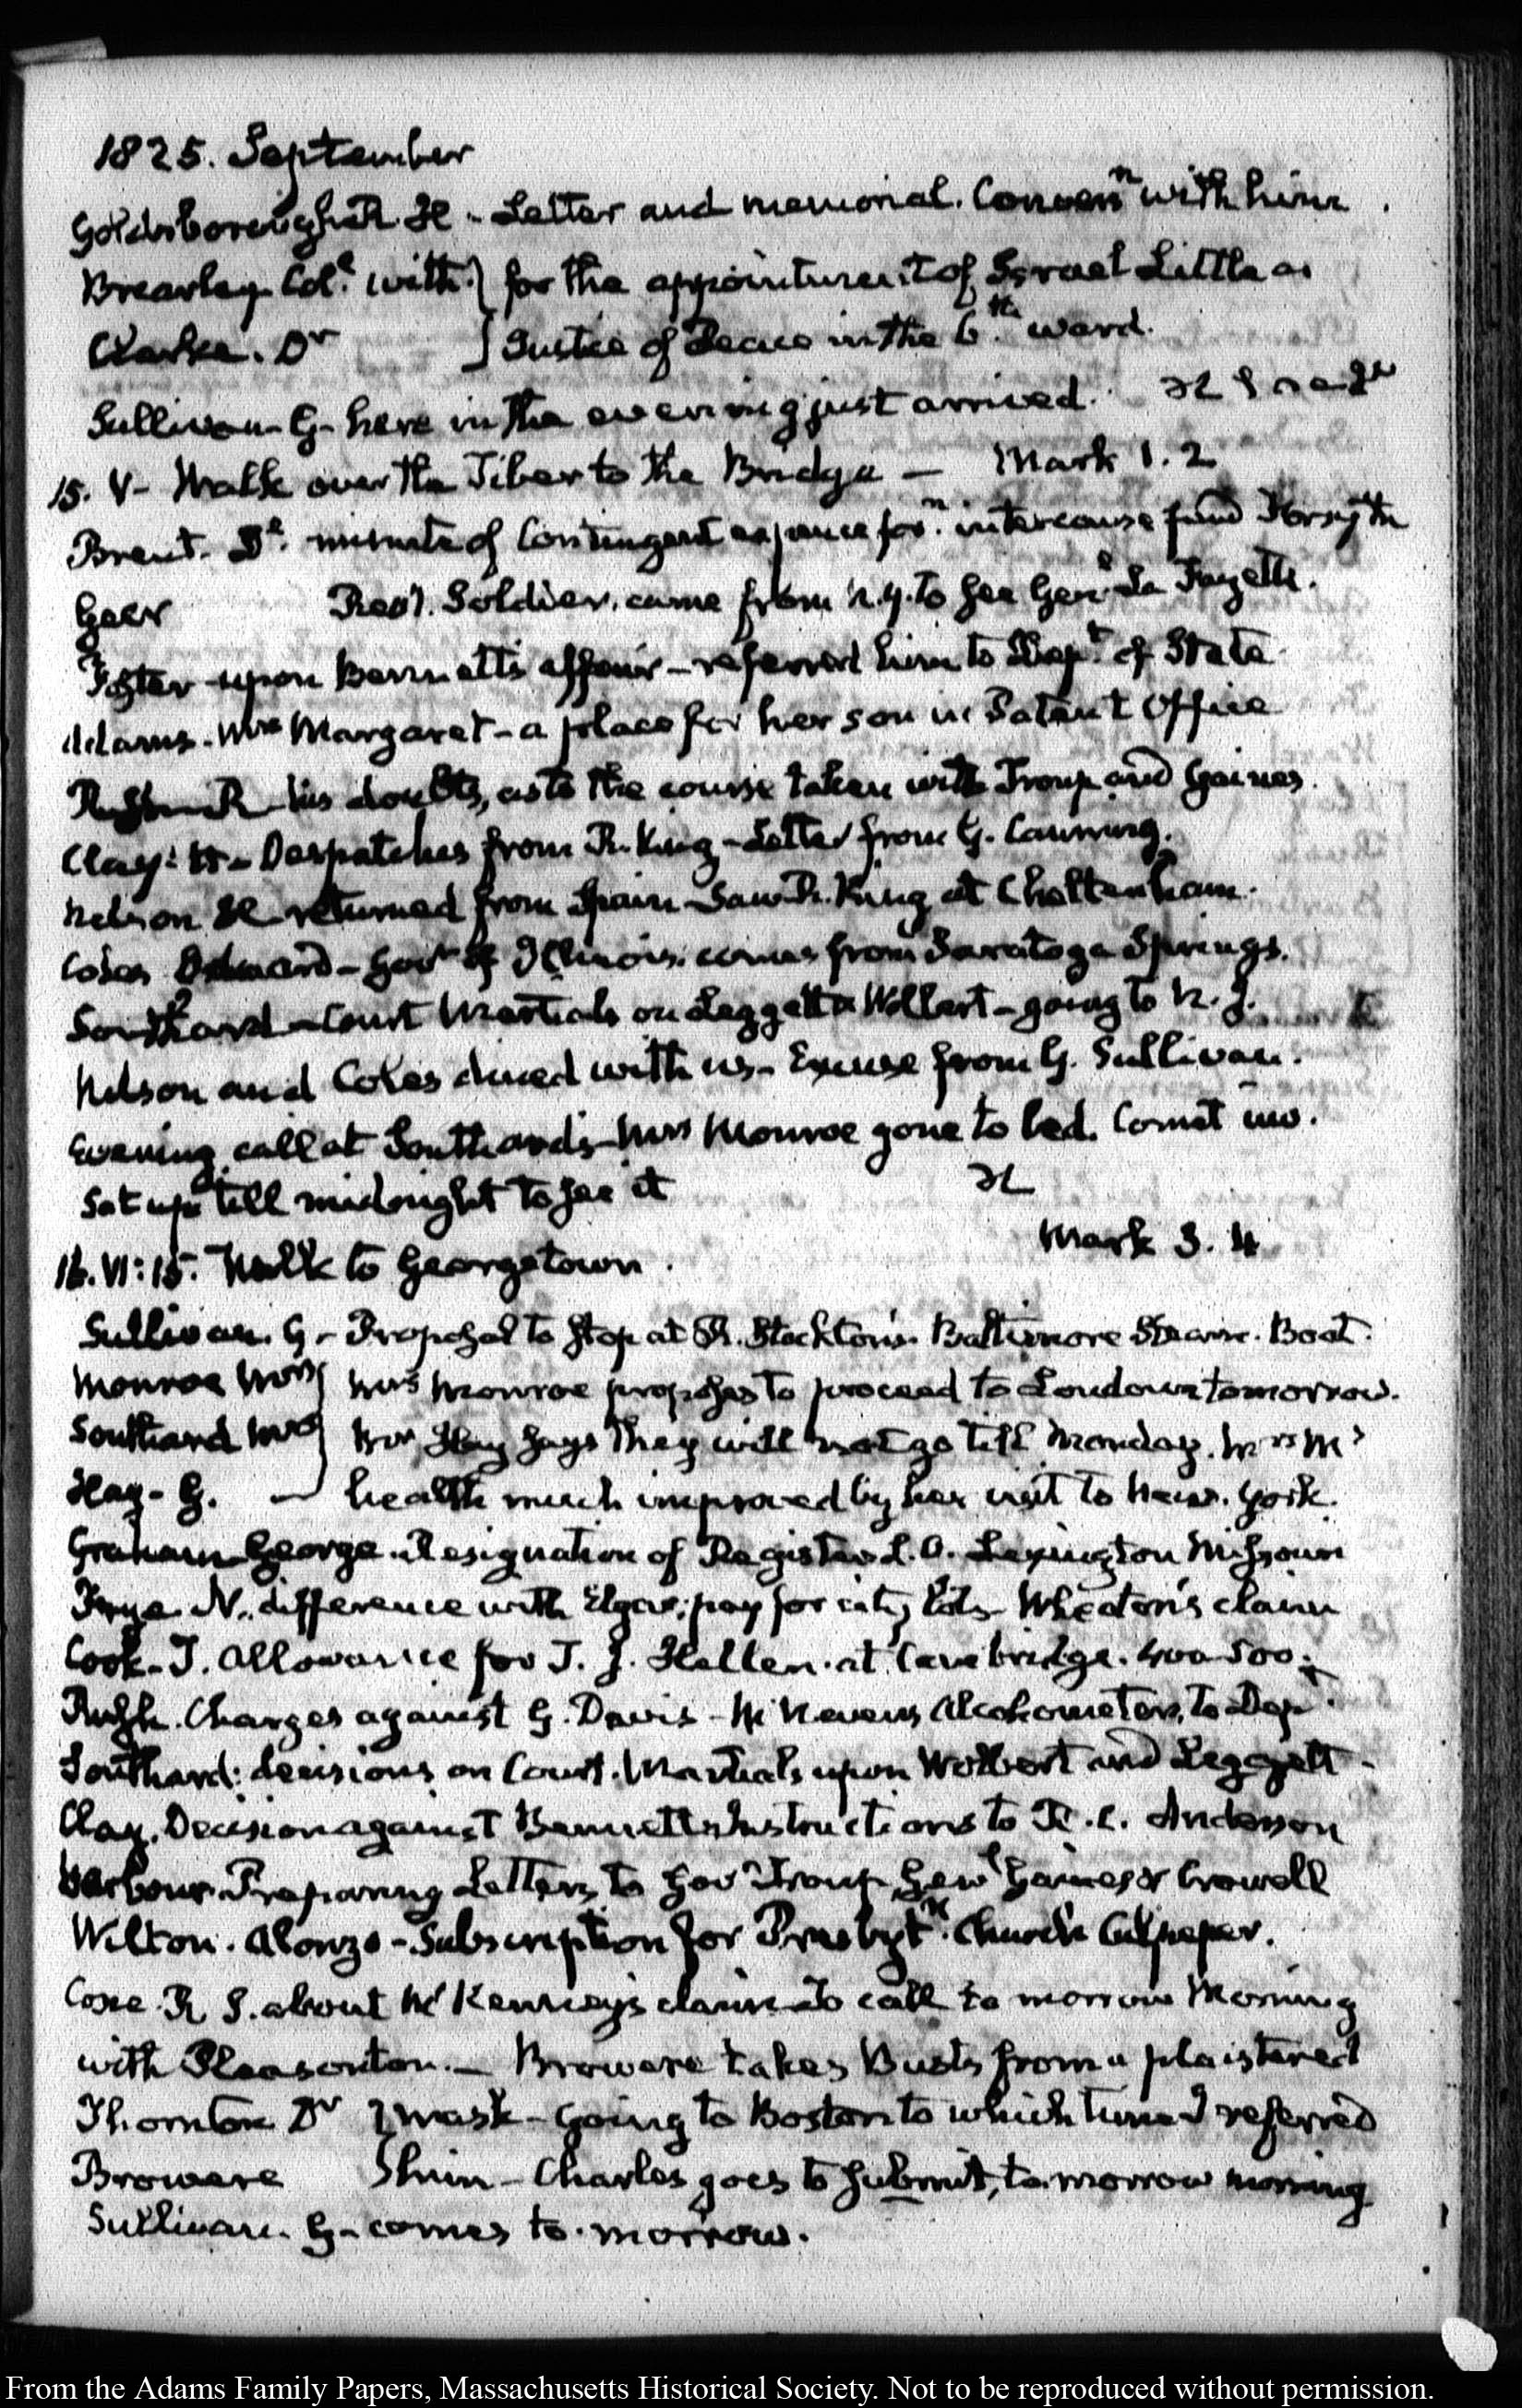 1825. September
Goldsborough R. H - Letter and memorial. Convers.n with him
Brearley Col.l with } for the appointment of Israel Little as
Clarke. Dr } Justice of Peace in the 6.th ward.
Sullivan. G- here in the evening just arrived.
15. V- Walk over the Tiber to the Bridge — Mark 1. 2
Brent. D.l minute of Contingent expence for.n intercourse fund Forsyth
Geer Rev.y Soldier. came from N.Y. to see Gen.l La Fayette.
Foster upon Bennett's affair - referred him to Dep.t of State
Adams. Mrs Margaret - a place for her son in Patent Office
Rush R - his doubts, as to the course taken with Troup and Gaines.
Clay: H - Despatches from R. King - Letter from G. Canning.
Nelson H returned from Spain - Saw R. King at Cheltenham.
Coles Edward - Gov.r of Illinois. comes from Saratoga Springs.
Southard - Court Martials on Leggett & Wolbert - going to N. J.
Nelson and Coles dined with us - Excuse from G. Sullivan.
Evening call at Southard's - Mrs Monroe gone to bed. Comet inv.
Sat up till midnight to see it
16. VI:15. Walk to Georgetown. Mark 3. 4
Sullivan. G - Proposal to stop at R. Stockton's. Baltimore Steam. Boat.
Monroe Mrs } Mrs Monroe proposes to proceed to Loudoun tomorrow.
Southard Mrs } Mr Hay says they will not go till Monday. Mrs M's
Hay - G. — health much improved by her visit to New. York.
Graham George. Resignation of Register L. O. Lexington Missouri
Frye N. difference with Elgar; pay for city lots - Wheaton's claim
Cook - T. allowance for T. J. Hellen. at Cambridge. 400-500.
Rush. Charges against G. Davis - Alcohometers, to Dep.t
Southard: decisions on Court. Martials upon Wolbert and Leggett -
Clay. Decision against Bennett. Instructions to R. C. Anderson
Barbour. Preparing Letters to Gov.r Troup, Gen.l Gaines & Crowell
Welton. Alonzo - Subscription for Presbyt.n Church Culpeper.
Coxe. R S. about McKenney's claim - to call to morrow Morning
with Pleasonton. - Browere takes Busts from a plaistered
Thornton Dr } mask - going to Boston to which time I referred
Browere } him - Charles goes to submit, to-morrow morning
Sullivan. G - comes to-morrow.
From the Adams Family Papers, Massachusetts Historical Society. Not to be reproduced without permission.